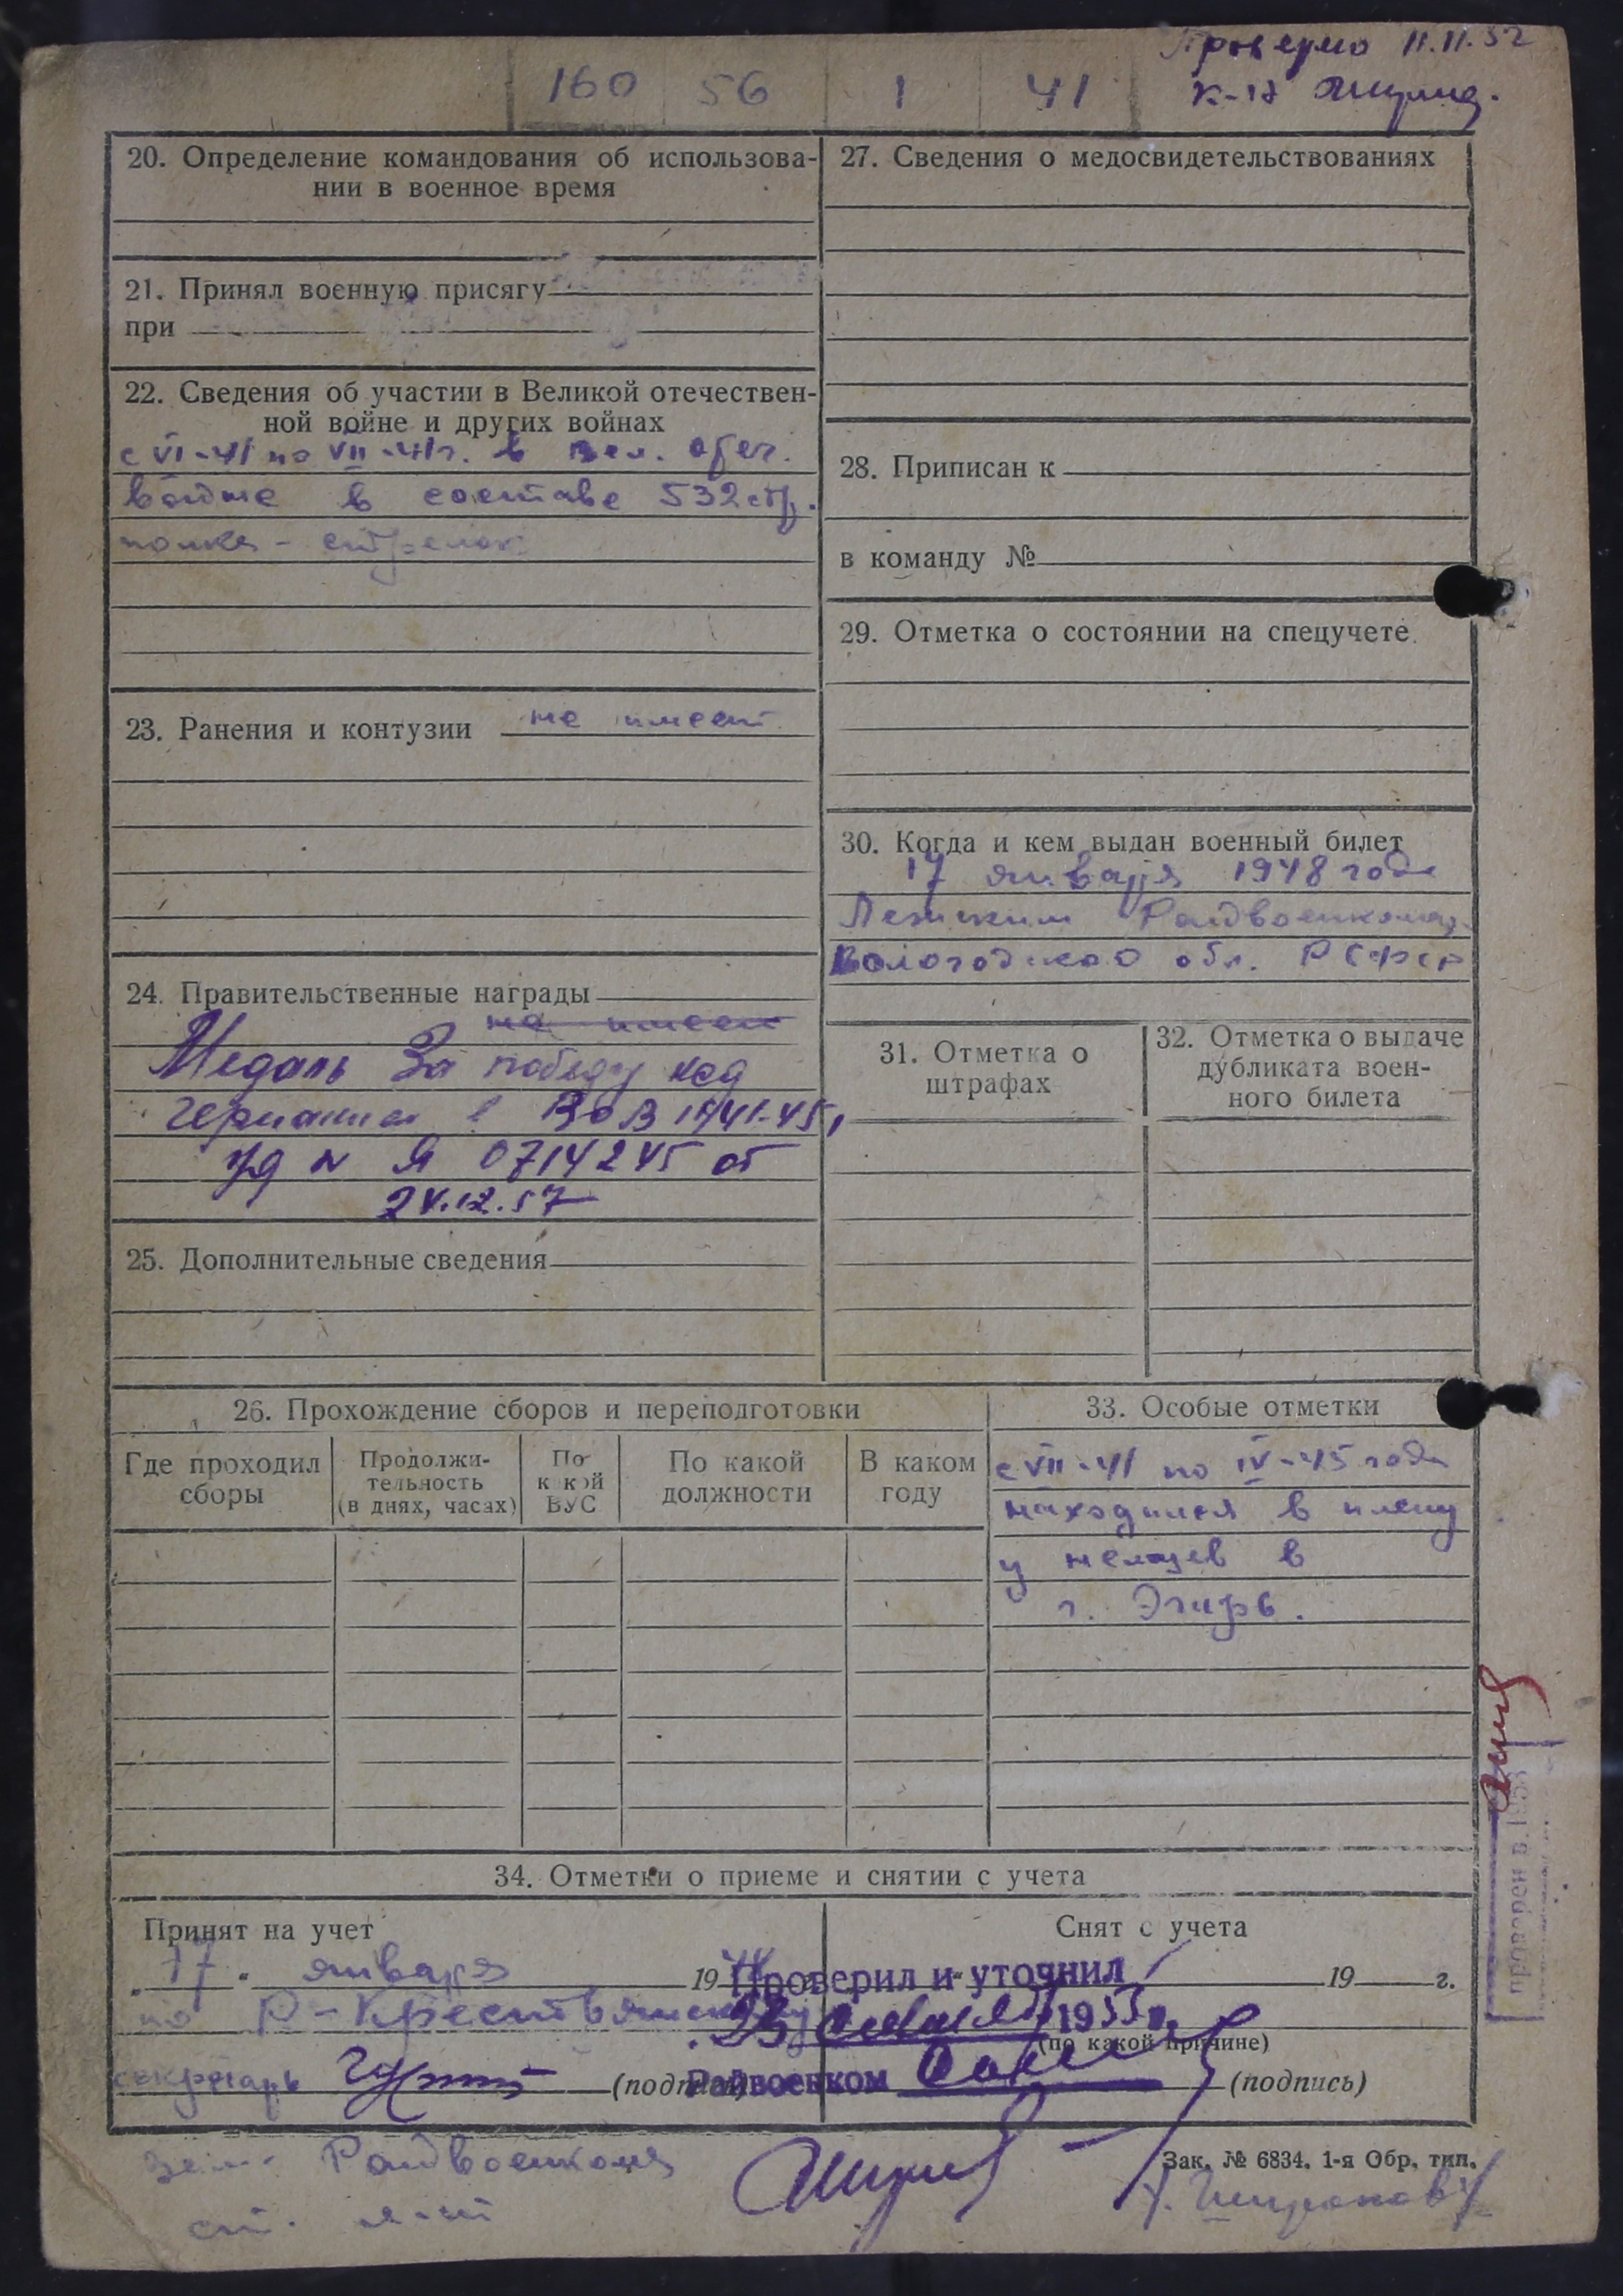 Проверено 11.11.52
160 56 1 41
20. Определение командования об использова-
нии в военное время
21. Принял военную присягу
при
22. Сведения об участии в Великой отечествен-
ной войне и других войнах
с VI-41 по VII-41г. в Вел. отеч.
войне в составе 532 стр.
полка - стрелок
23. Ранения и контузии не имеет
24. Правительственные награды
не имеет
Медаль За победу над
Германией в ВОВ 1941-45,
уд N Я 0714245 от
24.12.57
25. Дополнительные сведения
27. Сведения о медосвидетельствованиях
28. Приписан к
в команду №
29. Отметка о состоянии на спецучете
30. Когда и кем выдан военный билет
17 января 1948 года
Райвоенкомат
Вологодской обл. РСФСР
31. Отметка о
штрафах
32. Отметка о выдаче
дубликата воен-
ного билета
26. Прохождение сборов и переподготовки
Где проходил
сборы
Продолжи-
тельность
(в днях, часах)
По
какой
ВУС
По какой
должности
В каком
году
33. Особые отметки
с VII-41 по IV-45 года
находился в плену
у немцев в
г. Эгирв.
34. Отметки о приеме и снятии с учета
Принят на учет
17 января 19
по Р-Крестьянскому
секретарь (подпись)
Снят с учета
19 г.
(по какой причине)
(подпись)
Проверил и уточнил
1953г.
Райвоенком
проверен в 195
Зак. № 6834. 1-я Обр. тип.
зам. Райвоенкома
ст. л-нт